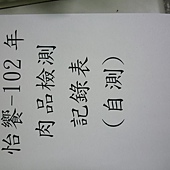 怡饗-102年
肉品檢測
記錄表
(自測)